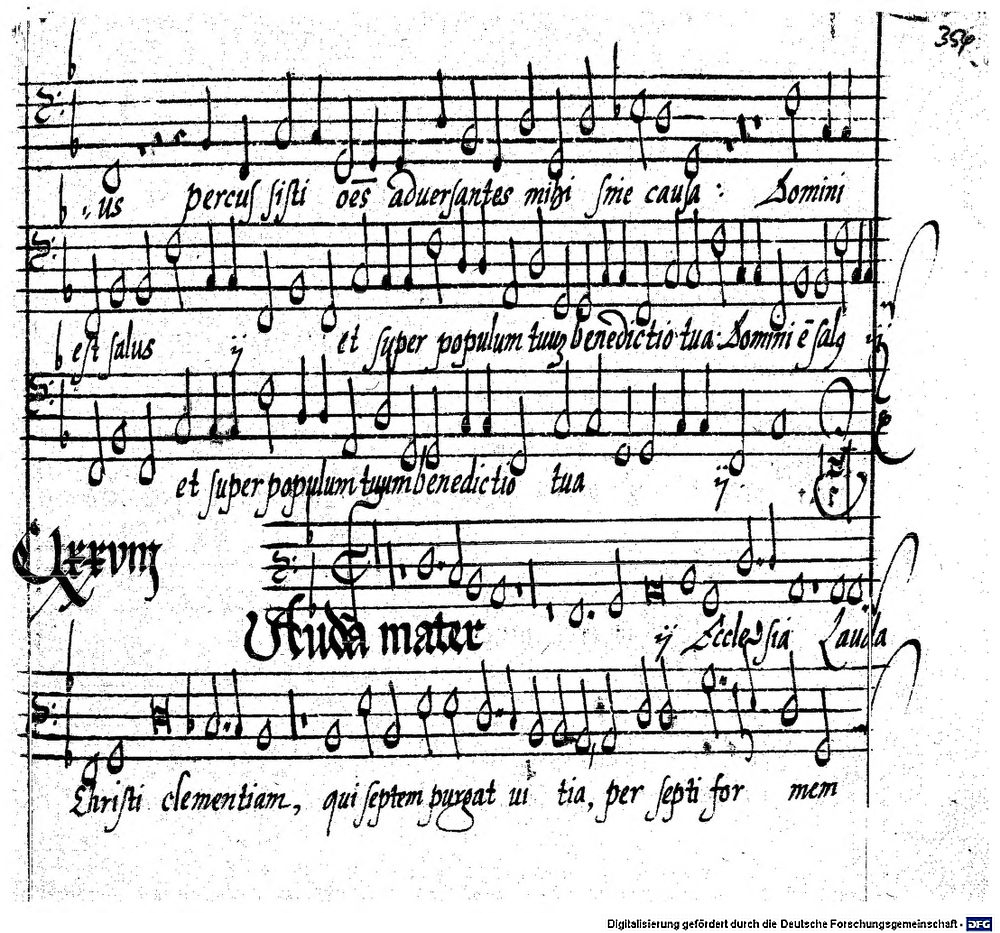 354
us percussisti oēs adversantes mihi sine causa : Domini
est salus ij et super populum tuuz benedictio tua: Domini ē salq ij
et super populum tuum benedictio tua ij
Lauda mater
ij Ecclesia Lauda
Christi clementiam, qui septem purgat ui tia, per septi for mem
Digitalisierung gefördert durch die Deutsche Forschungsgemeinschaft - DFG